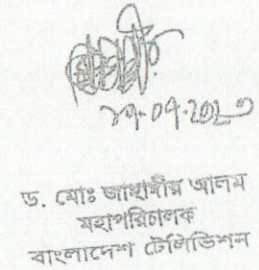 ২৭-০৭-২০২৩
ড. মোঃ জাহাঙ্গীর আলম
মহাপরিচালক
বাংলাদেশ টেলিভিশন